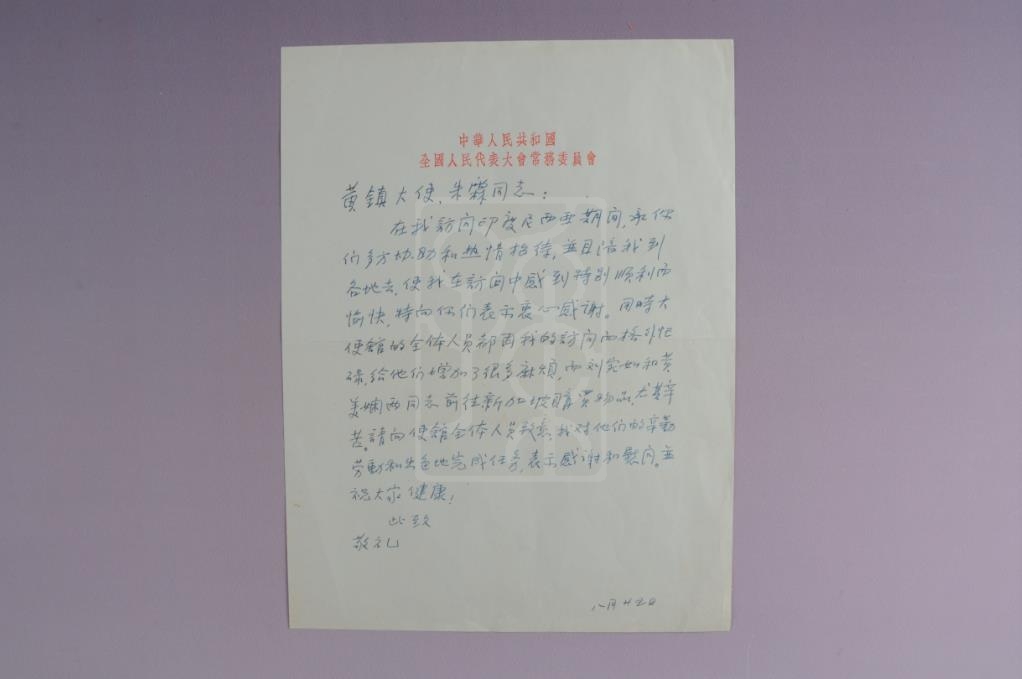 中華人民共和國
全國人民代表大會常務委員會
黄鎮大使、朱霖同志：
在我訪问印度尼西亚期间，承你
们多方协助和热情招待，并且陪我到
各地去，使我在訪问中感到特别順利而
愉快，特向你们表示衷心感谢。同時大
使舘的全体人员都因我的訪问而格外忙
碌，给他们增加了很多麻煩，而刘宗如和黄
美娴两同志前往新加坡購買物品，尤其辛
苦。請向使舘全体人员致意，我对他们的辛勤
劳動和出色地完成任务，表示感谢和慰问。並
祝大家健康！
此致
敬礼
八月廿五日